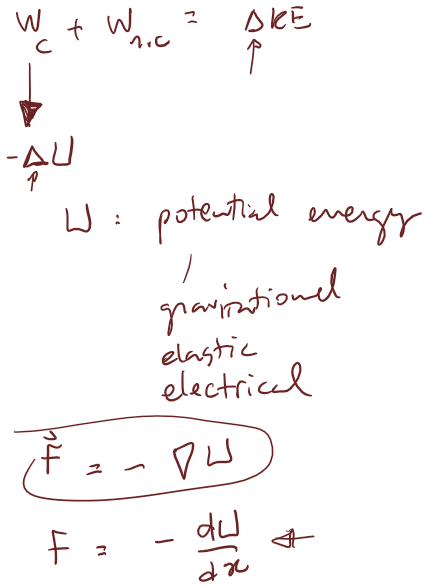 W_c + W_n.c = ΔKE
-ΔU
U : potential energy
gravitational
elastic
electrical
F⃗ = - ∇U
F = - dU/dx